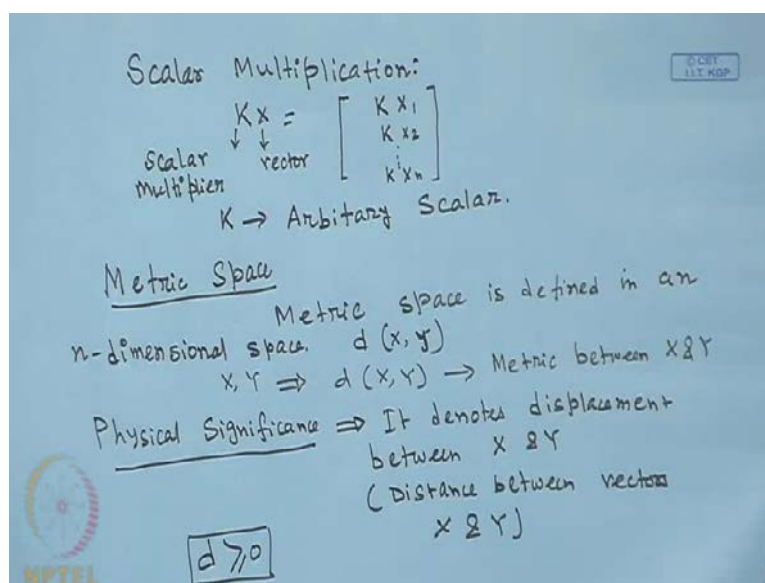 Scalar Multiplication:
© CET
I.I.T. KGP
Kx = [ K x1
K x2
⋮
K xn ]
Scalar multiplier vector
K → Arbitary Scalar.
Metric Space
Metric space is defined in an
n-dimensional space. d (x, y)
X, Y ⇒ d (X, Y) → Metric between X & Y
Physical Significance ⇒ It denotes displacement
between X & Y
(Distance between vectors
X & Y)
d ≥ 0
NPTEL